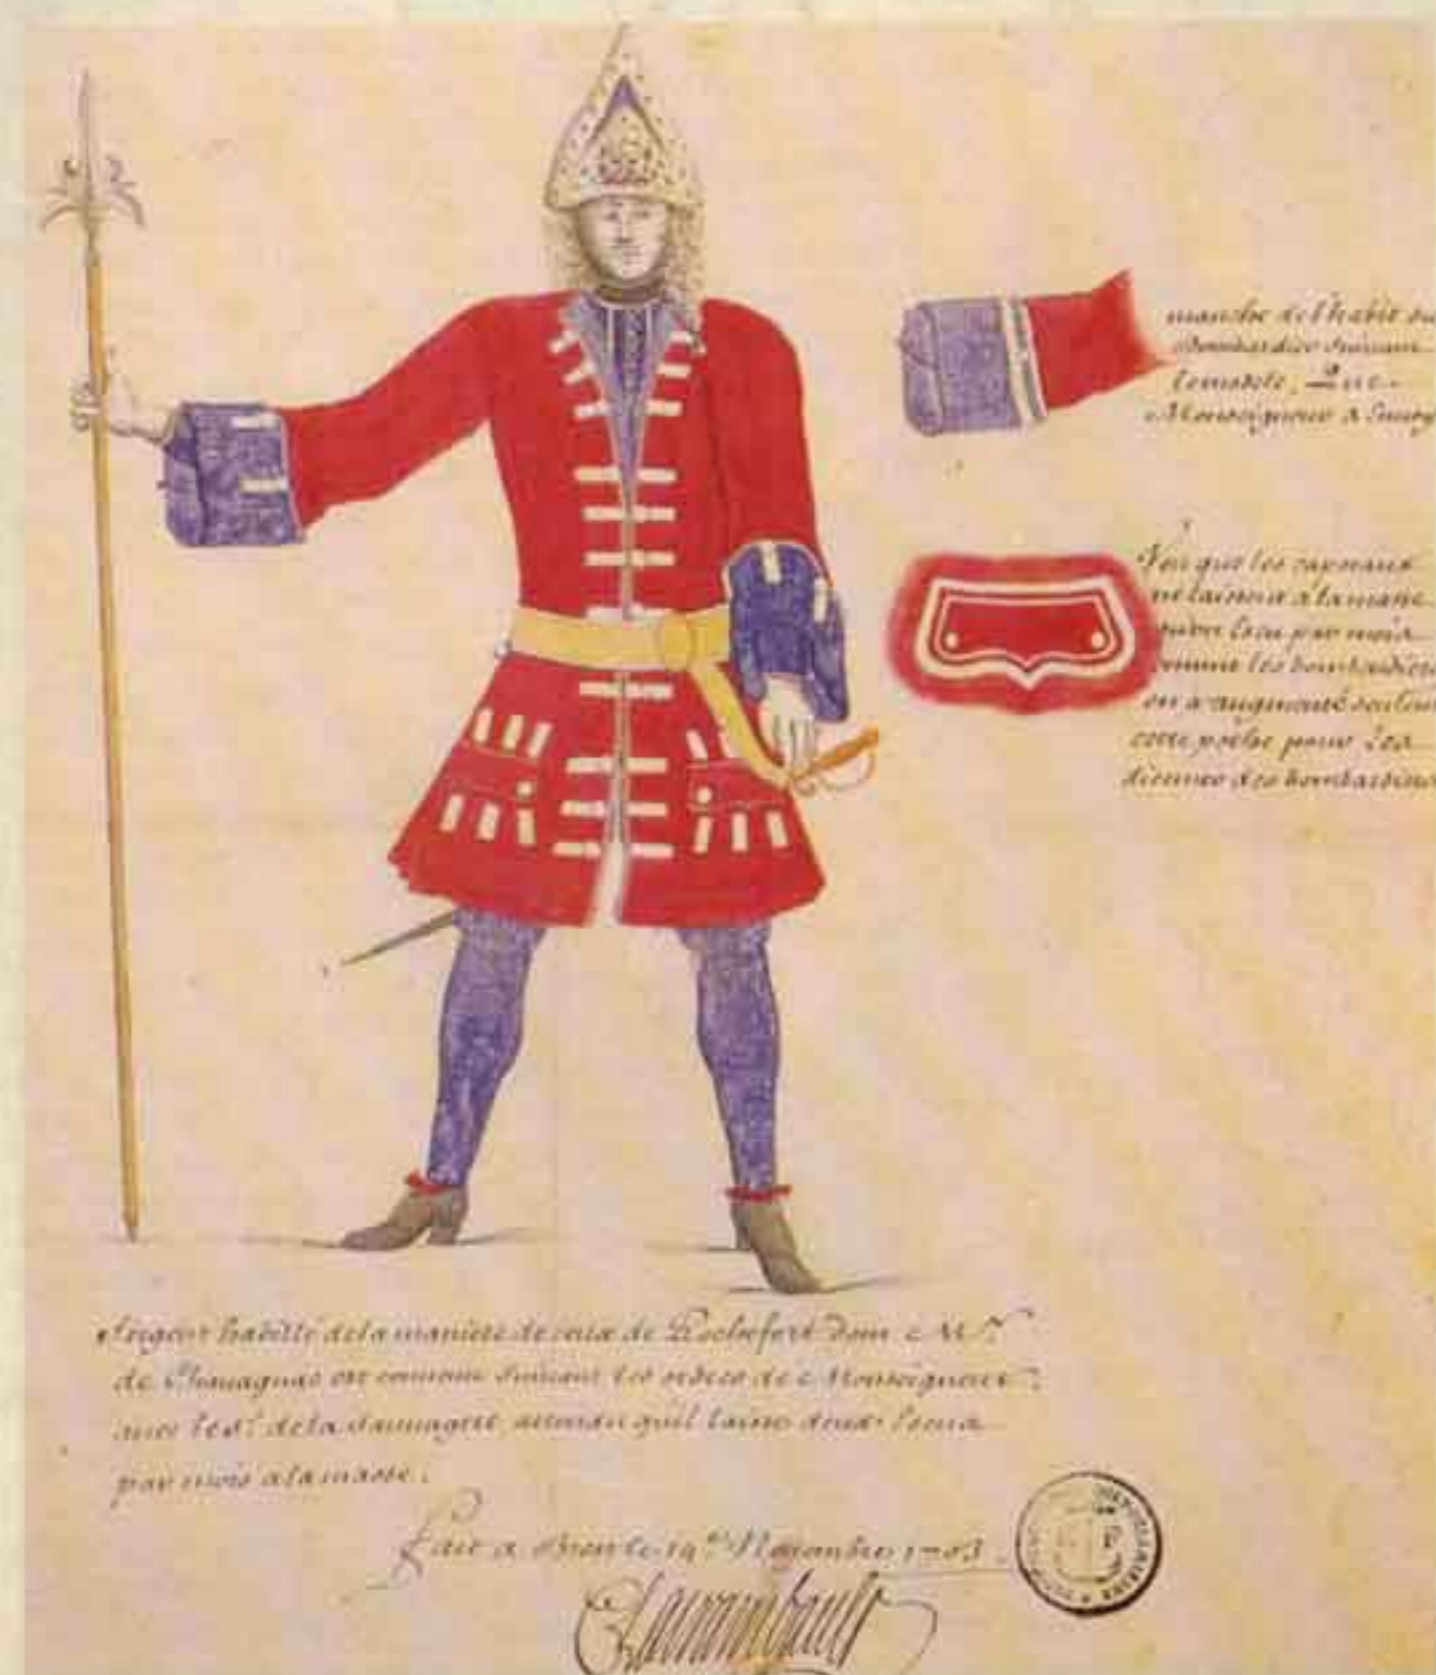 manche de l'habit du
Bombardier suivant
le modele, Que
Monseigneur a
Veu que les caporaux
ne laissent a la masse
qu'un Escu par mois
comme les bombardiers
on a augmenté
cette poche pour les
des bombardiers
Sergent habillé de la maniere de ceux de Rochefort dont Mr.
de est convenu suivant les ordres de Monseigneur
avec le Sr. de la attendu qu'il laisse deux Escus
par mois a la masse.
fait a Brest le 19e. Novembre 1703
Clairambault